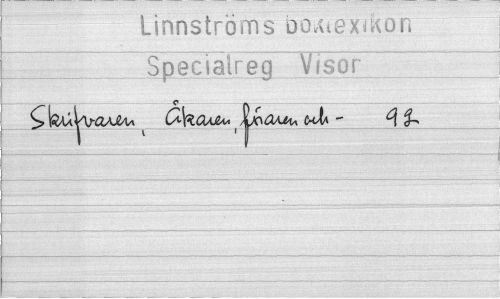 Linnströms boklexikon
Specialreg Visor
Skrifvaren, Åkaren, föraren och - 92